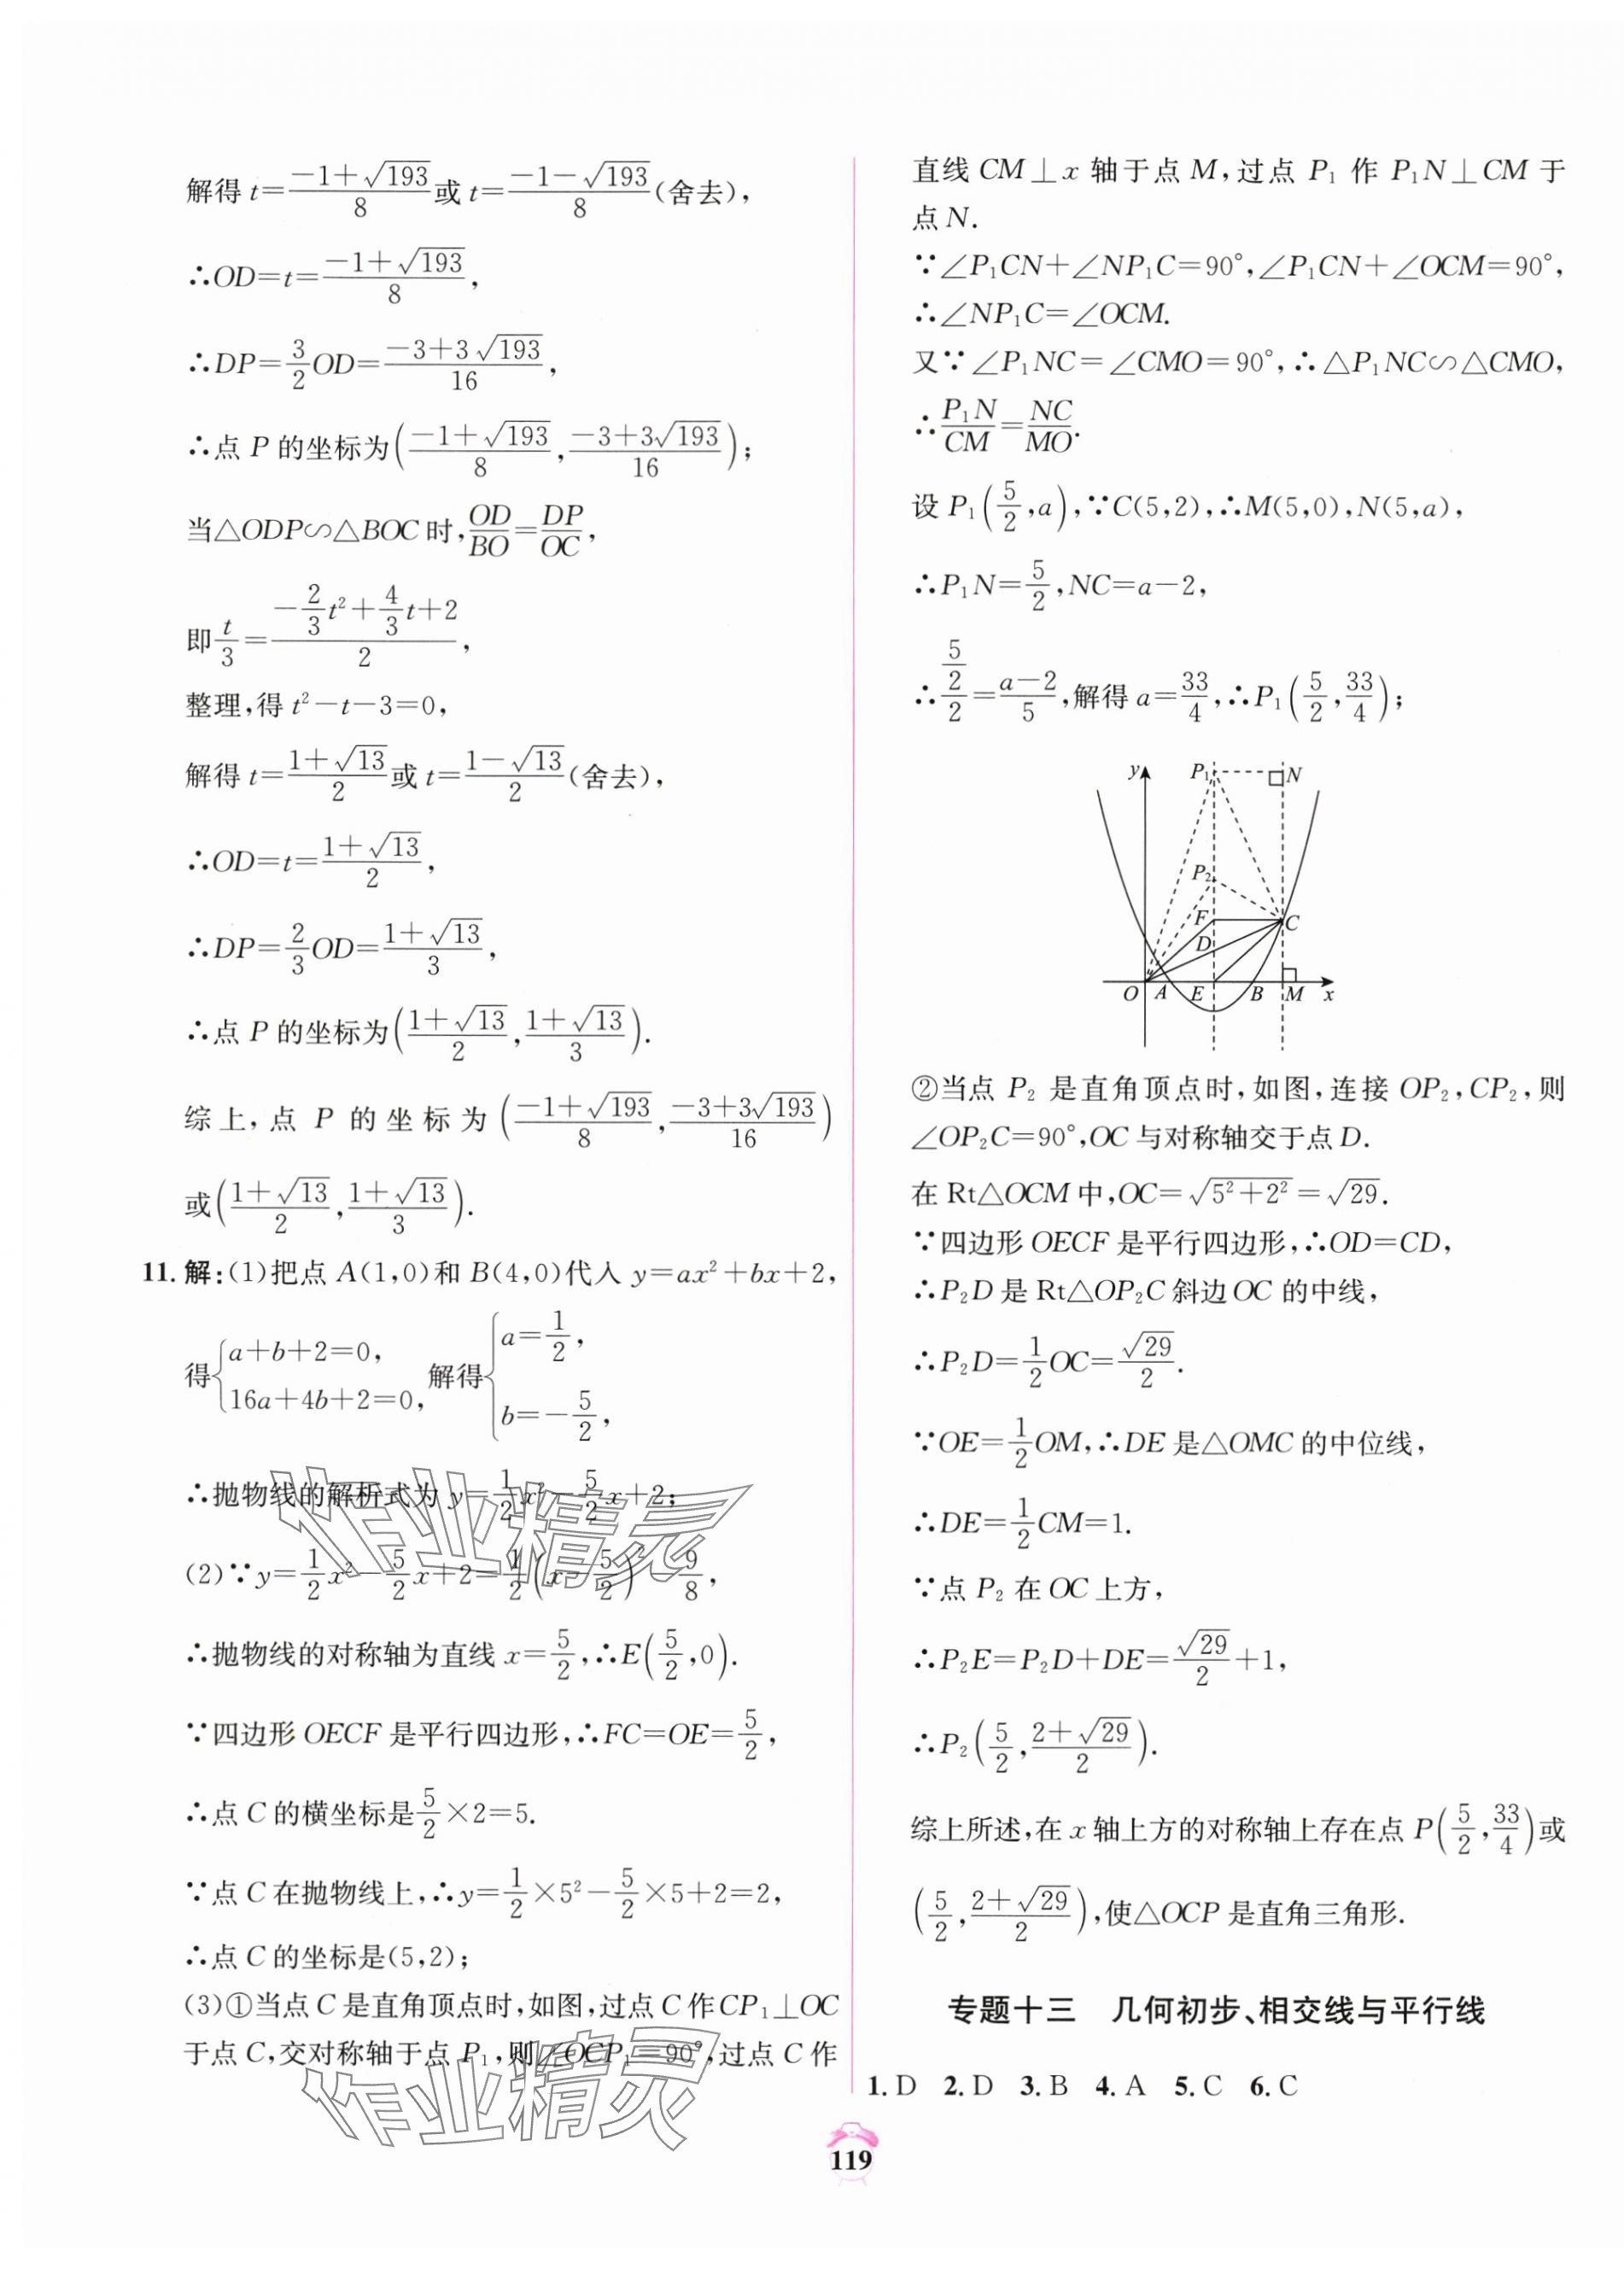 解得 t=(-1+√193)/8 或 t=(-1-√193)/8 (舍去),
∴OD=t=(-1+√193)/8,
∴DP=3/2 OD=(-3+3√193)/16,
∴点 P 的坐标为((-1+√193)/8,(-3+3√193)/16);
当△ODP∽△BOC 时,OD/BO=DP/OC,
即 t/3=(-2/3 t²+4/3 t+2)/2,
整理,得 t²-t-3=0,
解得 t=(1+√13)/2 或 t=(1-√13)/2 (舍去),
∴OD=t=(1+√13)/2,
∴DP=2/3 OD=(1+√13)/3,
∴点 P 的坐标为((1+√13)/2,(1+√13)/3).
综上,点 P 的坐标为((-1+√193)/8,(-3+3√193)/16)
或((1+√13)/2,(1+√13)/3).
11. 解:(1)把点 A(1,0)和 B(4,0)代入 y=ax²+bx+2,
得{a+b+2=0, 16a+4b+2=0, 解得{a=1/2, b=-5/2,
∴抛物线的解析式为 y=1/2 x²-5/2 x+2;
(2)∵y=1/2 x²-5/2 x+2=1/2(x-5/2)²-9/8,
∴抛物线的对称轴为直线 x=5/2,∴E(5/2,0).
∵四边形 OECF 是平行四边形,∴FC=OE=5/2,
∴点 C 的横坐标是 5/2×2=5.
∵点 C 在抛物线上,∴y=1/2×5²-5/2×5+2=2,
∴点 C 的坐标是(5,2);
(3)①当点 C 是直角顶点时,如图,过点 C 作 CP₁⊥OC
于点 C,交对称轴于点 P₁,则∠OCP₁=90°,过点 C 作
直线 CM⊥x 轴于点 M,过点 P₁ 作 P₁N⊥CM 于
点 N.
∵∠P₁CN+∠NP₁C=90°,∠P₁CN+∠OCM=90°,
∴∠NP₁C=∠OCM.
又∵∠P₁NC=∠CMO=90°,∴△P₁NC∽△CMO,
∴P₁N/CM=NC/MO.
设 P₁(5/2,a),∵C(5,2),∴M(5,0),N(5,a),
∴P₁N=5/2,NC=a-2,
∴(5/2)/2=(a-2)/5,解得 a=33/4,∴P₁(5/2,33/4);
y P₁ N
P₂
F C
D
O A E B M x
②当点 P₂ 是直角顶点时,如图,连接 OP₂,CP₂,则
∠OP₂C=90°,OC 与对称轴交于点 D.
在 Rt△OCM 中,OC=√(5²+2²)=√29.
∵四边形 OECF 是平行四边形,∴OD=CD,
∴P₂D 是 Rt△OP₂C 斜边 OC 的中线,
∴P₂D=1/2 OC=√29/2.
∵OE=1/2 OM,∴DE 是△OMC 的中位线,
∴DE=1/2 CM=1.
∵点 P₂ 在 OC 上方,
∴P₂E=P₂D+DE=√29/2+1,
∴P₂(5/2,(2+√29)/2).
综上所述,在 x 轴上方的对称轴上存在点 P(5/2,33/4)或
(5/2,(2+√29)/2),使△OCP 是直角三角形.
专题十三 几何初步、相交线与平行线
1. D 2. D 3. B 4. A 5. C 6. C
119
作业精灵
作业精灵